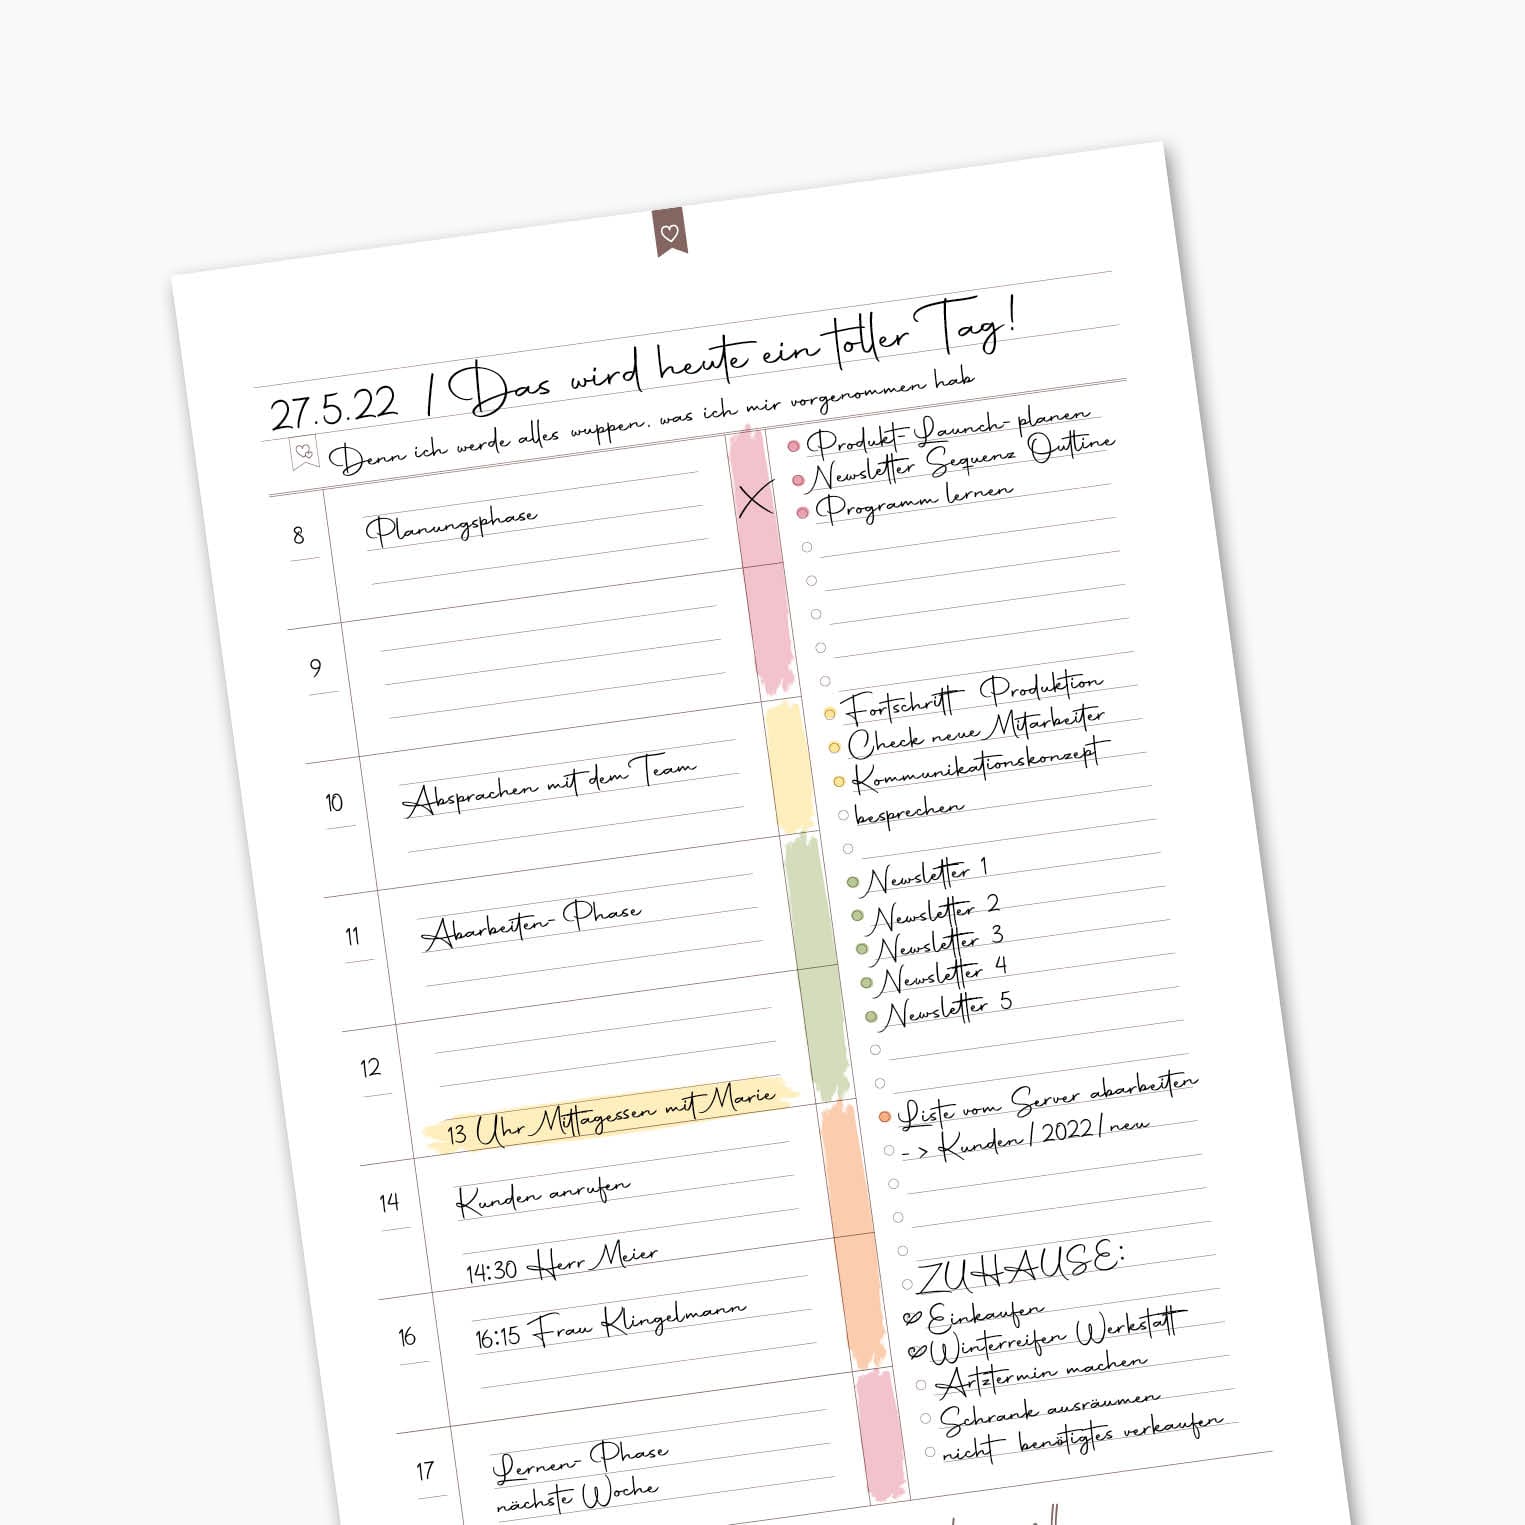 27.5.22 / Das wird heute ein toller Tag!
Denn ich werde alles wuppen, was ich mir vorgenommen hab
8
Planungsphase
9
10
Absprachen mit dem Team
11
Abarbeiten-Phase
12
13 Uhr Mittagessen mit Marie
14
Kunden anrufen
14:30 Herr Meier
16
16:15 Frau Klingelmann
17
Lernen-Phase
nächste Woche
X
Produkt-Launch-planen
Newsletter Sequenz Outline
Programm lernen
Fortschritt Produktion
Check neue Mitarbeiter
Kommunikationskonzept
besprechen
Newsletter 1
Newsletter 2
Newsletter 3
Newsletter 4
Newsletter 5
Liste vom Server abarbeiten
-> Kunden/2022/neu
ZUHAUSE:
Einkaufen
Winterreifen Werkstatt
Artztermin machen
Schrank ausräumen
nicht benötigtes verkaufen